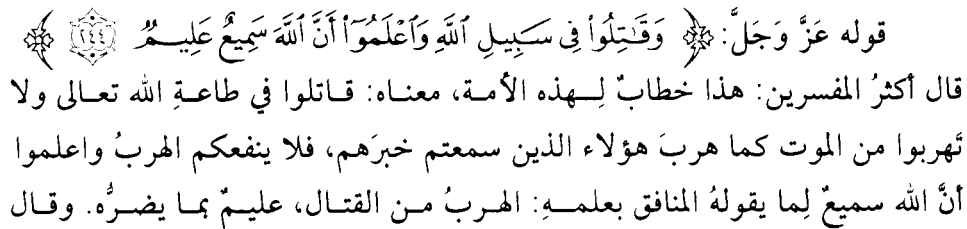 قوله عَزَّ وَجَلَّ: ﴿ وَقَٰتِلُوا۟ فِى سَبِيلِ ٱللَّهِ وَٱعْلَمُوٓا۟ أَنَّ ٱللَّهَ سَمِيعٌ عَلِيمٌ ٢٤٤ ﴾
قال أكثرُ المفسرين: هذا خطابٌ لِـهذه الأمة، معناه: قاتلوا في طاعةِ الله تعالى ولا
تَهربوا من الموت كما هربَ هؤلاء الذين سمعتم خبرَهم، فلا ينفعكم الهربُ واعلموا
أنَّ الله سميعٌ لِما يقولهُ المنافق بعلمهِ: الهربُ من القتال، عليمٌ بما يضرُّه. وقال